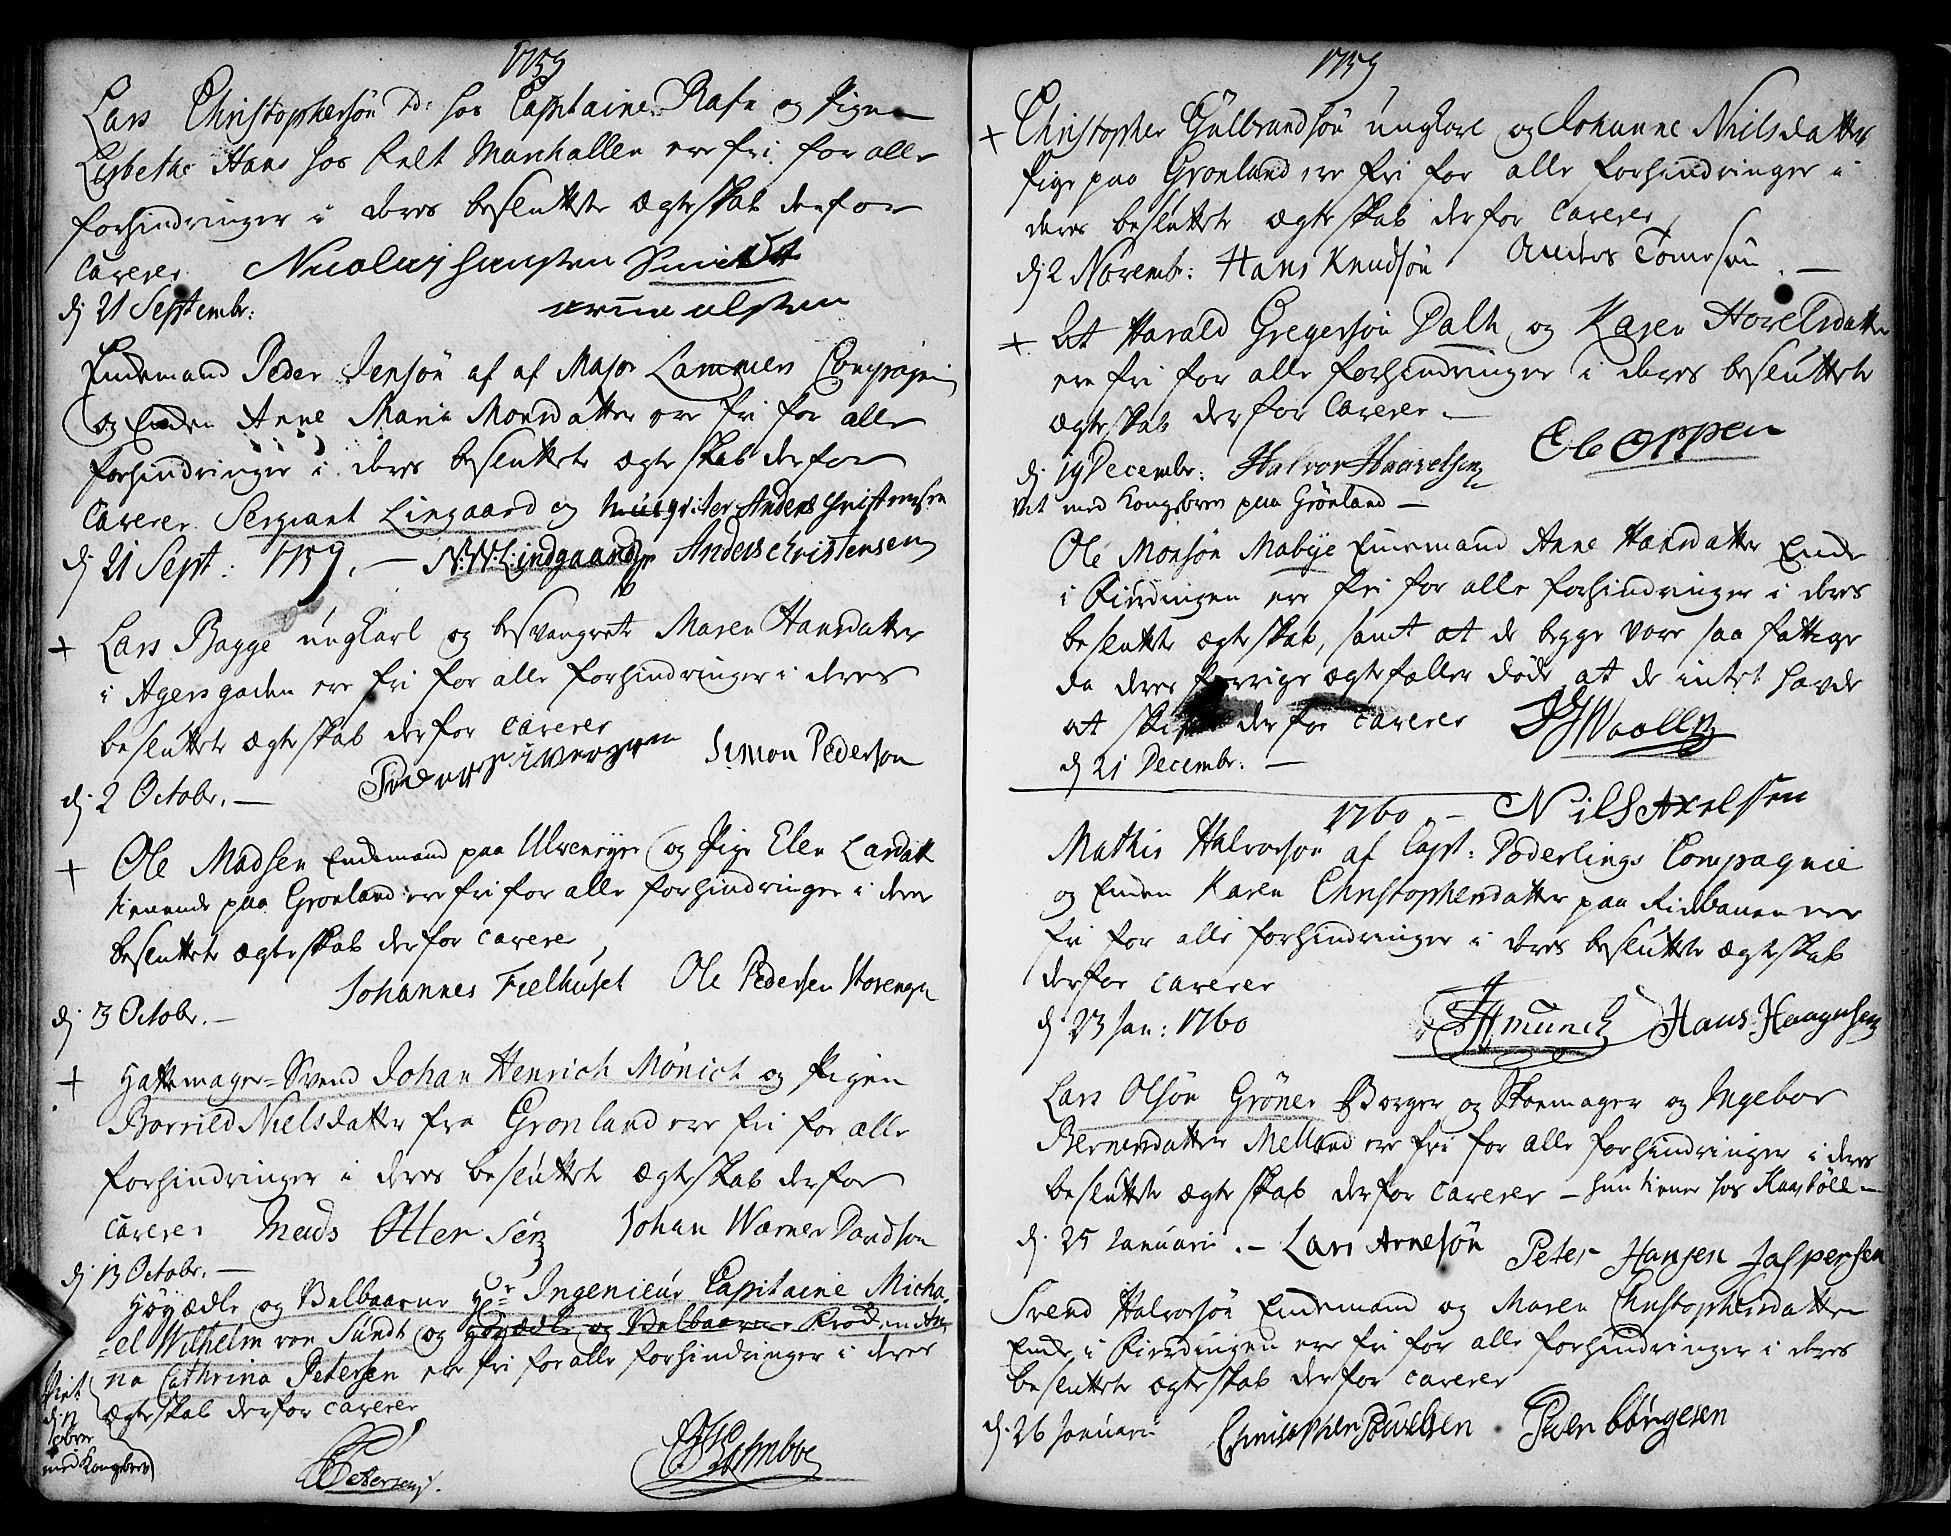 1759
Lars Christophersøn hos Captaine Rafn og Pigen
Lisbethe Hans hos ere fri for alle
forhindringer i deres besluttete ægteskab derfor
caverer Nicolay Hansen Smidt
dj 21 Septembr:
Enkemand Peder Jensøn af af Major Lammers Compagni
og Enken Anne Maria Monsdatter ere fri for alle
forhindringer i deres besluttete ægteskab derfor
caverer Sergiant Lingaard og Anders Christensen
dj 21 Sept: 1759. — N:W:Lindgaard Anders Christensen
+ Lars Bagge ungkarl og besvangrete Maren Hansdatter
i Agersgaden ere fri for alle forhindringer i deres
besluttete ægteskab derfor caverer
Peder Siversen Simon Pederson
dj 2 Octobr. —
+ Ole Madsen Enkemand paa Ulvenøye og Pige Elen Larsdatt
tienende paa Grønland ere fri for alle forhindringer i dere
besluttete ægteskab derfor caverer
Johannes Fielhuset Ole Pedersen
dj 3 Octobr. —
+ Hattemager-Svend Johan Henrich Mönich og Pigen
Borrild Nielsdatter fra Grønland ere fri for alle
forhindringer i deres besluttete ægteskab derfor
caverer Mads Ottersen Johan Warner Davidson
dj 13 Octobr. —
Høyædle og Velbaarne Hr Ingenieur Capitaine Micha
-el Wilhelm von Sundt og Høyædle og Velbaarne An
na Cathrina Petersen ere fri for alle forhindringer i deres
ægteskab derfor caverer
Viet
dj
med Kongebrev
Petersen Holmboe
1759
+ Christopher Gulbrandsøn ungkarl og Johanne Nielsdatter
Pige paa Grønland ere fri for alle forhindringer i
deres besluttete ægteskab derfor caverer
dj 2 Novembr: Hans Knudsøn Anders Tomesøn. —
+ At Harald Gregersøn Dalh og Karen Hovelsdatter
ere fri for alle forhindringer i deres besluttete
ægteskab derfor caverer. —
dj 19 Decembr: Halvor Haavelsen Ole Oppen
Vit med Kongebrev paa Grönland —
Ole Monsøn Mabye Enkemand Anne Hansdatter Enke
i Pierdingen ere fri for alle forhindringer i deres
beslutte ægteskab, samt at de begge vare saa fattige
da deres forrige ægtefæller døde at de intet havde
at skifte derfor caverer Woller
dj 21 Decembr. —
1760. — Nils Axelssen
Mathis Halvorsøn af Capt: Poderlings Compagnie
og Enken Karen Christophersdatter paa Ridebanen ere
fri for alle forhindringer i deres besluttete ægteskab
derfor caverer
dj 23 Jan: 1760 Munch Hans Haagensen
Lars Olsøn Grøner Borger og Skoemager og Ingebor
Bernersdatter Melland ere fri for alle forhindringer i deres
besluttete ægteskab derfor caverer — hun tiener hos Karbøll —
dj. 25 Januarii. — Lars Arnesøn Peter Hansen Jaspersen
Svend Halvorsøn Enkemand og Maren Christophersdatter
Enke i Pierdingen ere fri for alle forhindringer i deres
besluttete ægteskab derfor caverer
dj. 26 Januarii Christopher Povelsen Peder Börgesen